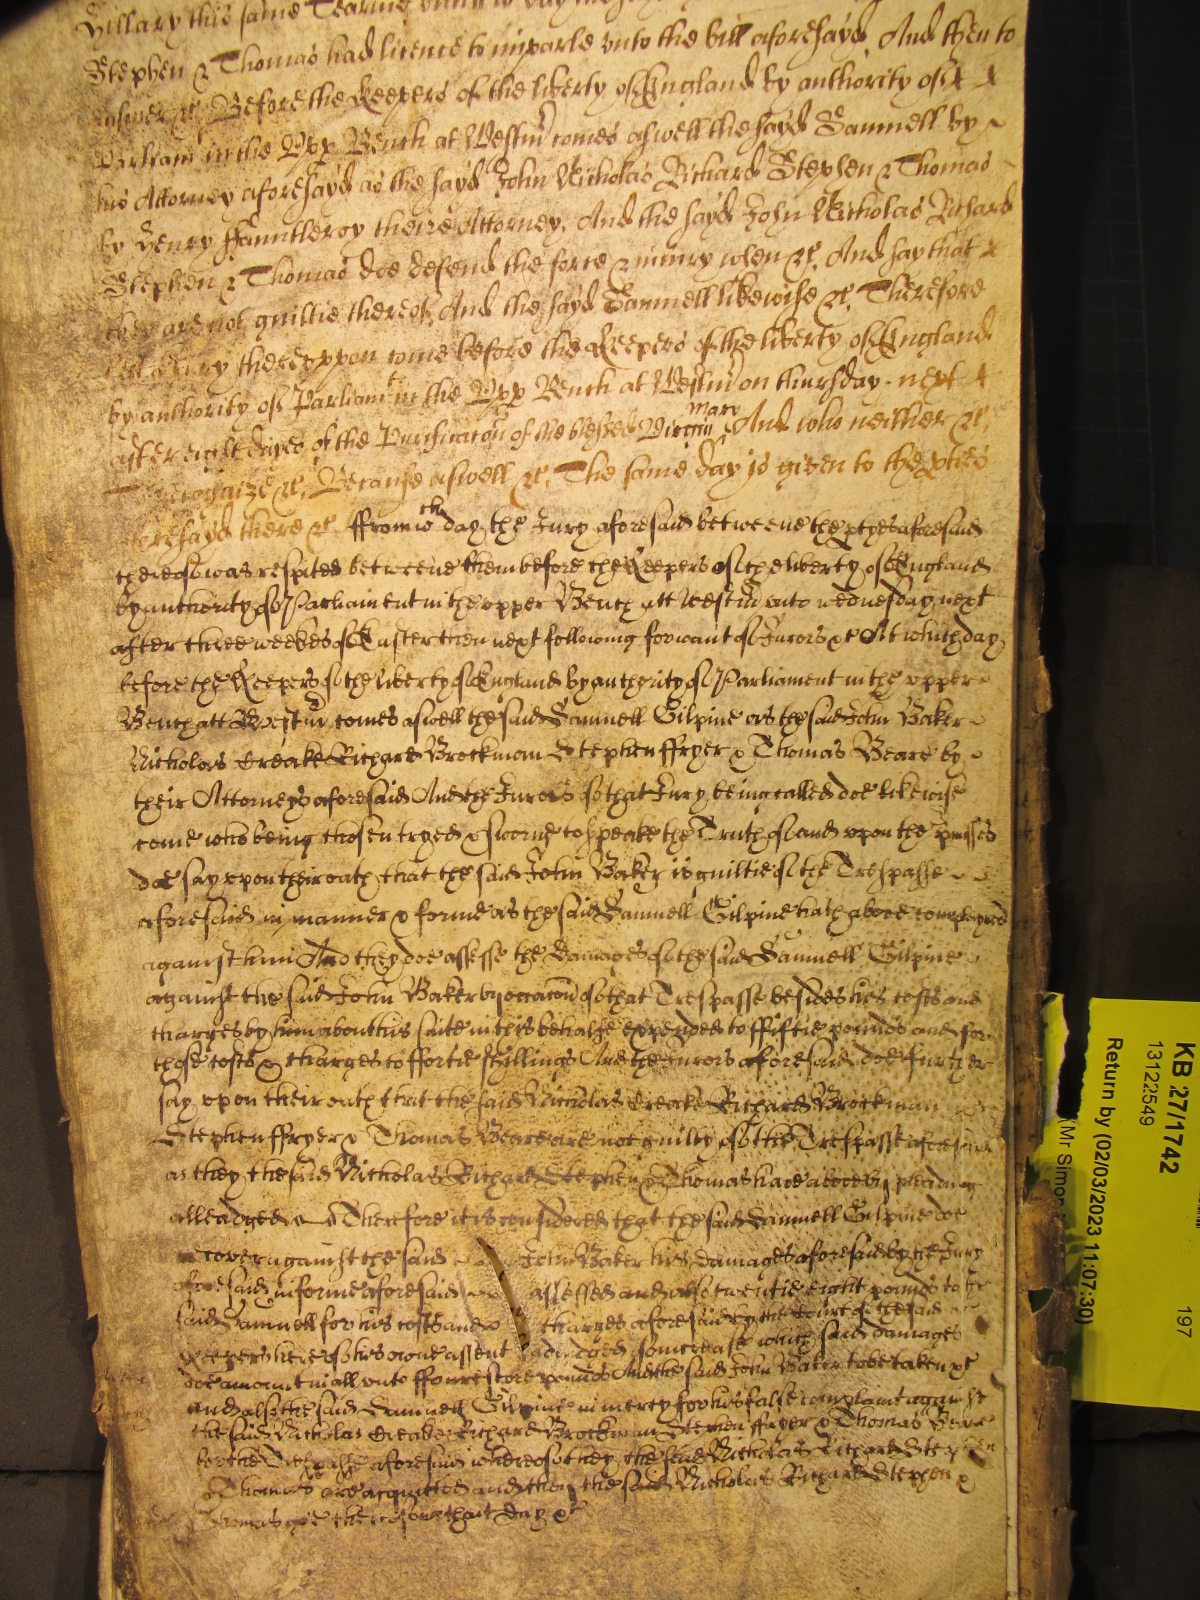 Hillary this same Tearme
Stephen & Thomas had licence to imparle vnto the bill aforesayd. And then to
answer &c. Before the Keepers of the liberty of England by authority of
Parliam in the Vpp Bench at Westm comes aswell the sayd Samuell by
his Attorney aforesayd as the sayd John Nicholas Richard Stephen & Thomas
by Henry ffauntleroy theire Attorney. And the sayd John Nicholas Richard
Stephen & Thomas doe defend the force & iniury when &c. And say that
they are not guiltie thereof. And the sayd Samuell likewise &c. Therefore
let a Jury therevppon come before the Keepers of the liberty of England
by authority of Parliamt in the Vpp Bench at Westm on thursday next
after eight dayes of the Purificacon of the blessed Virgin Mary And who neither &c.
to recognize &c. Because aswell &c. The same day is given to the pties
aforesayd there &c. ffrom wch day the Jury aforesaid betweene the ptyes aforesaid
thereof was respited betweene them before the Keepers of the liberty of England
by authority of Parliament in the vpper Bench att Westm vnto wednesday next
after three weekes of Easter then next following for want of Jurors &c Att which day
before the Keepers of the liberty of England by authority of Parliament in the vpper
Bench att Westm comes aswell the said Samuell Gilpine as the said John Baker
Nicholas Creake Richard Brockman Stephen ffryer & Thomas Beare by
their Attorneys aforesaid And the Jurors of that Jury being called doe likewise
come who being chosen tryed & sworne to speake the Truth of and vpon the pmisses
doe say vpon their oath that the said John Baker is guiltie of the Trespasse
aforesaid in manner & forme as the said Samuell Gilpine hath above complayned
against him And they doe assesse the Damages of the said Samuell Gilpine
against the said John Baker by occacon of that Trespasse besides his costs and
charges by him about his suite in this behalfe expended to ffiftie pounds and for
those costs & charges to ffortie shillings And the Jurors aforesaid doe further
say vpon their oath that the said Nicholas Creake Richard Brockman
Stephen ffryer & Thomas Beare are not guilty of the Trespasse aforesaid
as they the said Nicholas Richard Stephen & Thomas have above by pleading
alleadged Therefore it is considered that the said Samuell Gilpine doe
recover against the said John Baker his damages aforesaid by the Jury
aforesaid in forme aforesaid assessed and also twentie eight pounds to the
said Samuell for his costs and charges aforesaid by the Court of the said
Keepers here of his owne assent adiudged of increase which said damages
doe amount in all vnto ffoure score pounds And the said John Baker to be taken &c
and also the said Samuell Gilpine in mercy for his false complaint against
the said Nicholas Creake Richard Brockman Stephen ffryer & Thomas Beare
for the Trespasse aforesaid whereof they the said Nicholas Richard Stephen
Thomas are acquitted and they the said Nicholas Richard Stephen &
Thomas goe thereof without day &c
KB 27/1742
13122549
197
Return by (02/03/2023 11:07:30)
(Mr Simon